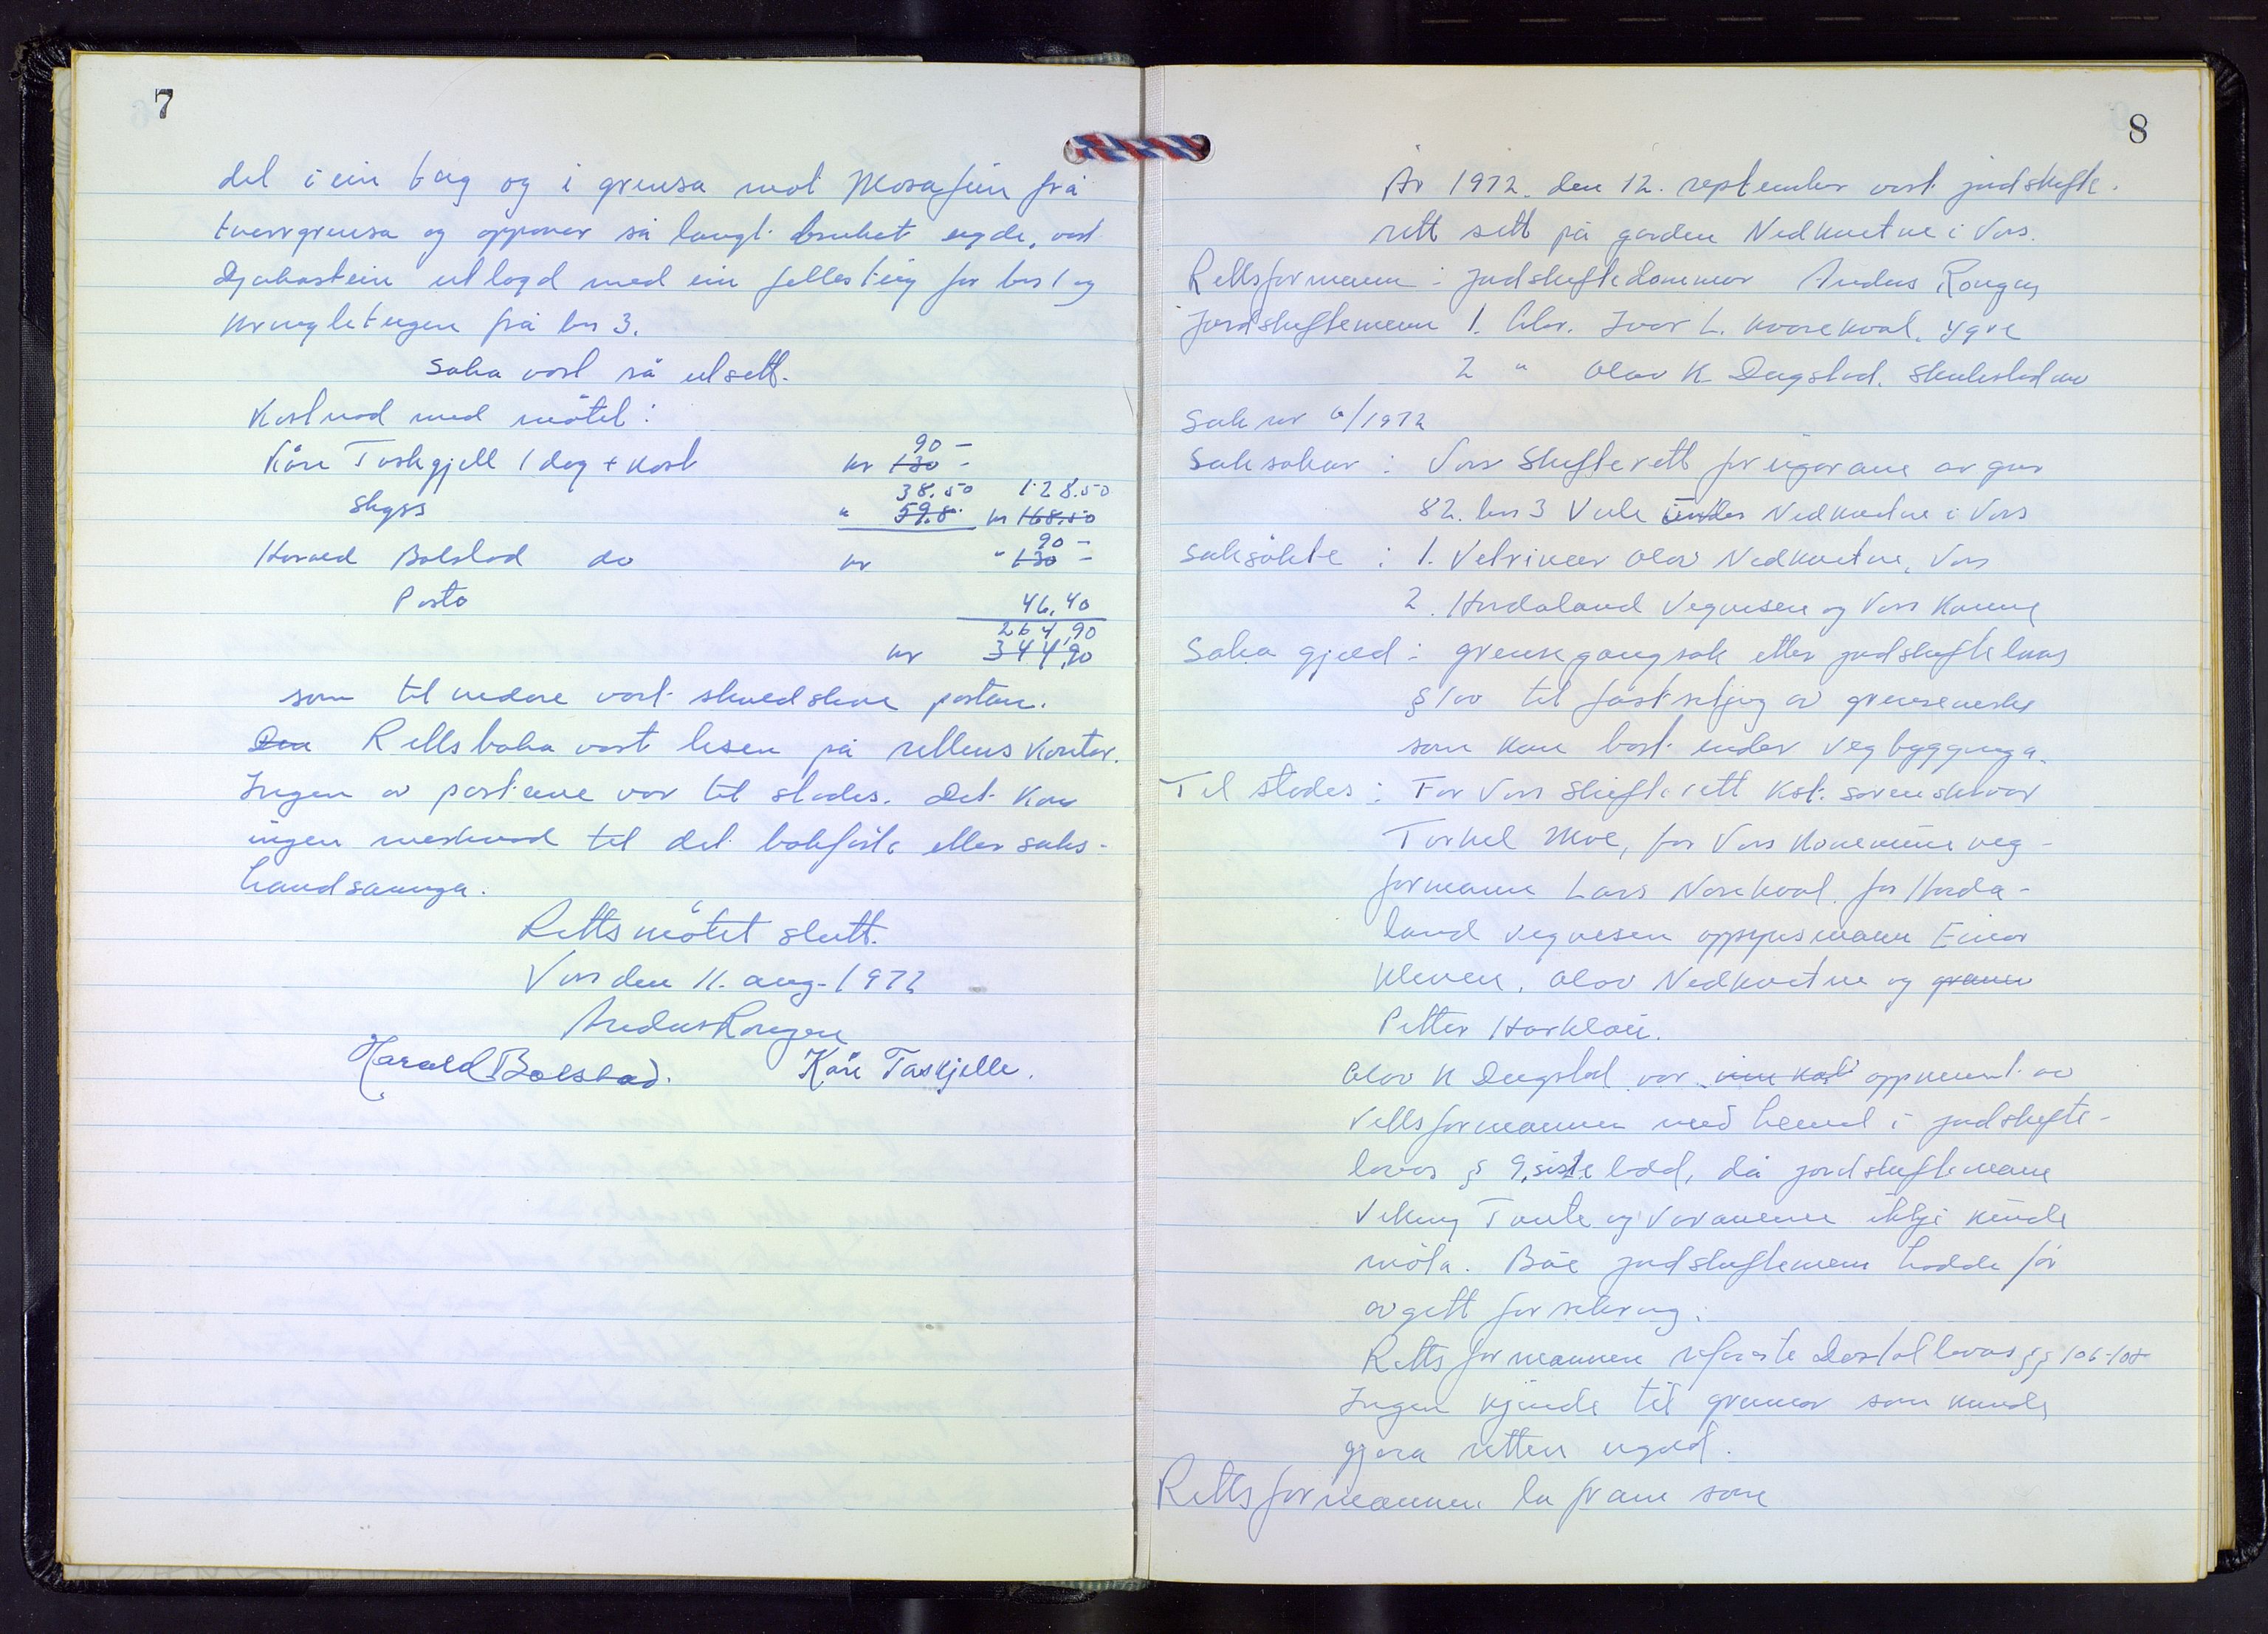 7
del i ein teig og i grensa mot Mosafinn frå
tverrgrensa og oppover så langt bruket eigde, vart
Djukastein utlagd med ein fellesteig for bnr 1 og
Kringleteigen frå bnr 3.
Saka vart så utsett.
Kostnad med møtet:
90 –
Kåre Taskjell 1 dag + kost kr 130 –
38.50 128.50
Skyss " 59.8 kr 168.50
90 –
Harald Bolstad do kr " 130 –
Porto 46,40
264,90
kr 344,90
som til nedare vart skuldskive partane.
Den Rettsboka vart lesen på rettens kontor.
Ingen av partane var til stades. Det kom
ingen merknad til det bokførte eller saks-
handsaminga.
Rettsmøtet slutt.
Voss den 11. aug. 1972
Anders Rongen
Harald Bolstad. Kåre Taskjelle.
8
År 1972. den 12. september vart jordskifte-
rett sett på garden Nedkvitne i Voss.
Rettsformann: jordskiftedommar Anders Rongen
Jordskiftemenn 1. Gbr. Ivar L. Kvarekval, Ygre
2 " Olav K Dugstad, Skulestadmo
Sak nr 6/1972
Saksøkar: Voss Skifterett for eigarane av gnr
82. bnr 3 Vele under Nedkvitne i Voss
Saksøkte: 1. Vetrinær Olav Nedkvitne, Voss
2. Hordaland Vegvesen og Voss Komm
Saka gjeld: grensegangsak etter jordskiftelovas
§ 100 til fastsetjing av grensemerke
som kom bort under vegbygginga.
Til stades: For Voss Skifterett Kst. sorenskrivar
Torkel Moe, for Voss Kommune veg-
formann Lars Norekval, for Horda-
land vegvesen oppsynsmann Einar
Kleven, Olav Nedkvitne og
Petter Harkløu.
Olav K Dugstad var oppnemnt av
rettsformannen med heimel i jordskifte-
lovas § 9, siste ledd, då jordskiftemann
Viking Tvinte og varamenn ikkje kunde
møta. Båe jordskiftemenn hadde før
avgitt forsikring.
Rettsformannen refererte Domstollovas §§ 106-108
Ingen kjende til grunnar som kunde
gjera retten ugild.
Rettsformannen la fram som